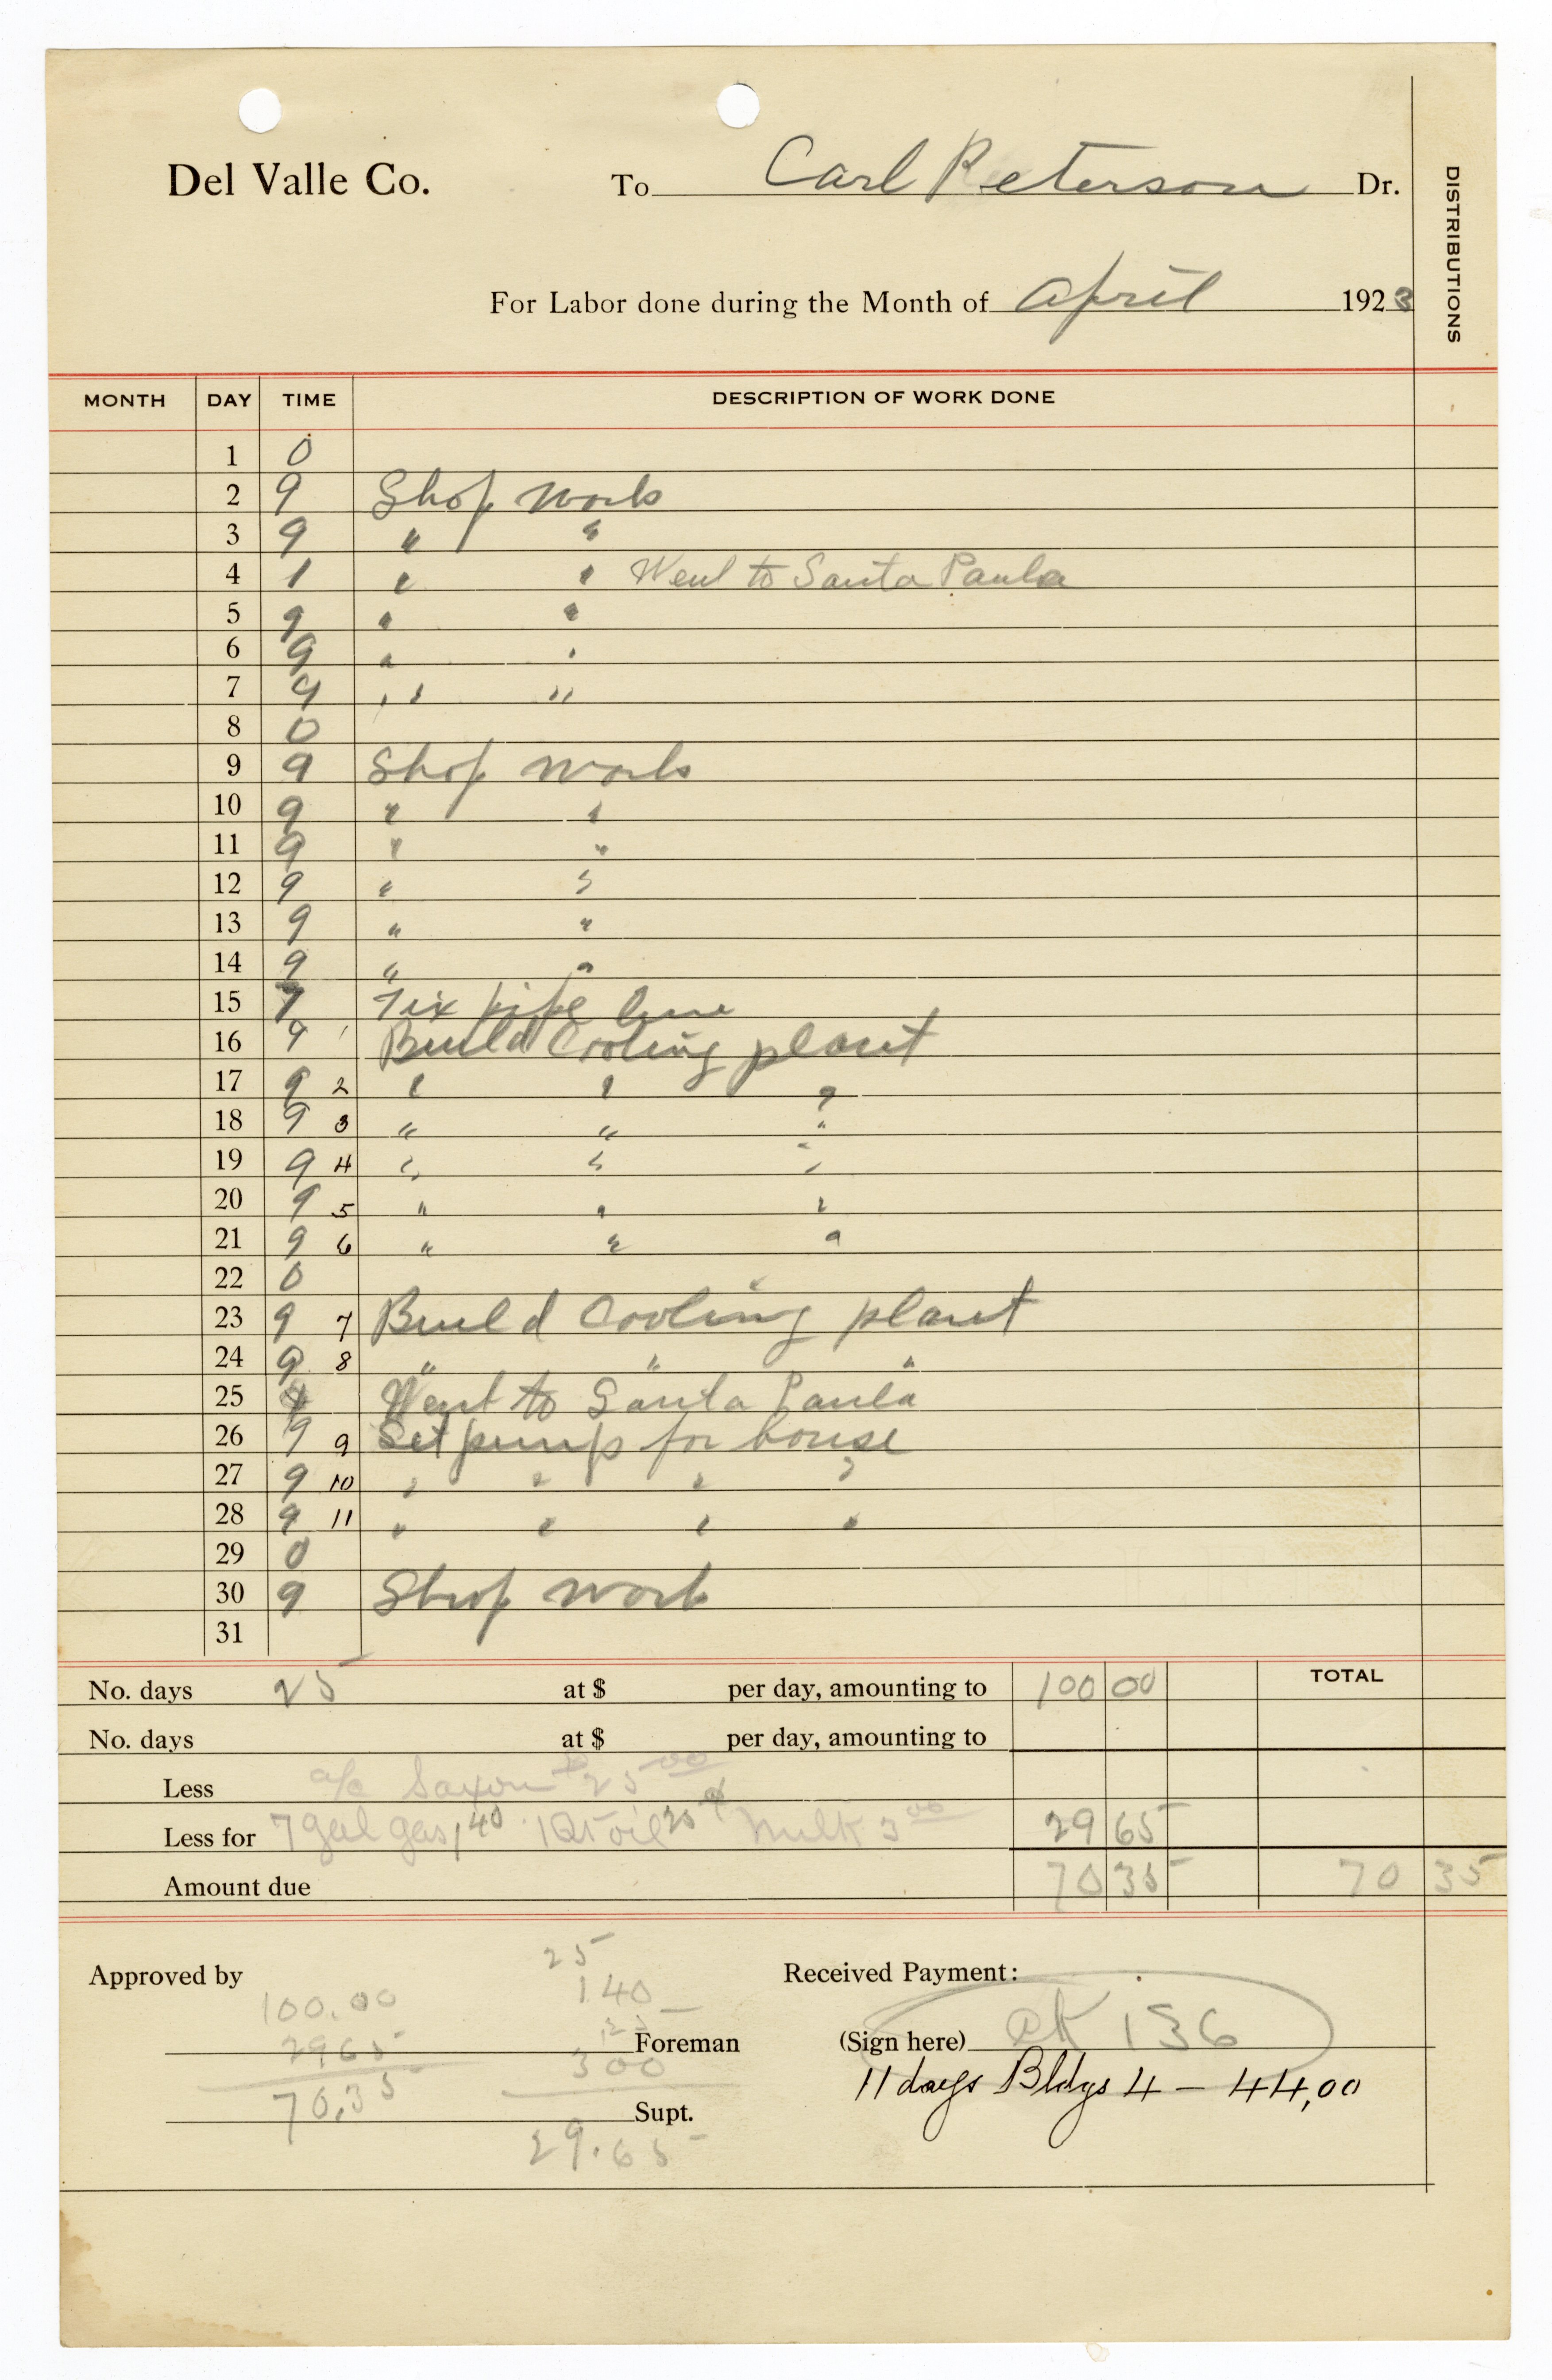 Del Valle Co. To Carl Peterson Dr.
DISTRIBUTIONS
For Labor done during the Month of April 1923
MONTH DAY TIME DESCRIPTION OF WORK DONE
1 0
2 9 Shop work
3 9 " "
4 1 " " Went to Santa Paula
5 9 " "
6 9 " "
7 9 " "
8 0
9 9 Shop work
10 9 " "
11 9 " "
12 9 " "
13 9 " "
14 9 " "
15 7 Fix pipe line
16 9 1 Build Cooling plant
17 9 2 " " "
18 9 3 " " "
19 9 4 " " "
20 9 5 " " "
21 9 6 " " "
22 0
23 9 7 Build Cooling plant
24 9 8 " " "
25 Went to Santa Paula
26 9 9 Set pump for house
27 9 10 " " " "
28 9 11 " " " "
29 0
30 9 Shop work
31
No. days 25 at $ per day, amounting to 100 00 TOTAL
No. days at $ per day, amounting to
Less a/c Saxon $25 00
Less for 7 gal gas 1 40 1 Qt oil 25 Milk 3 00 29 65
Amount due 70 35 70 35
Approved by
100.00
29 65
70.35
25
1.40
Foreman
3 00
Supt.
29.65
Received Payment:
(Sign here) CK 136
11 days Bldgs 4 — 44,00